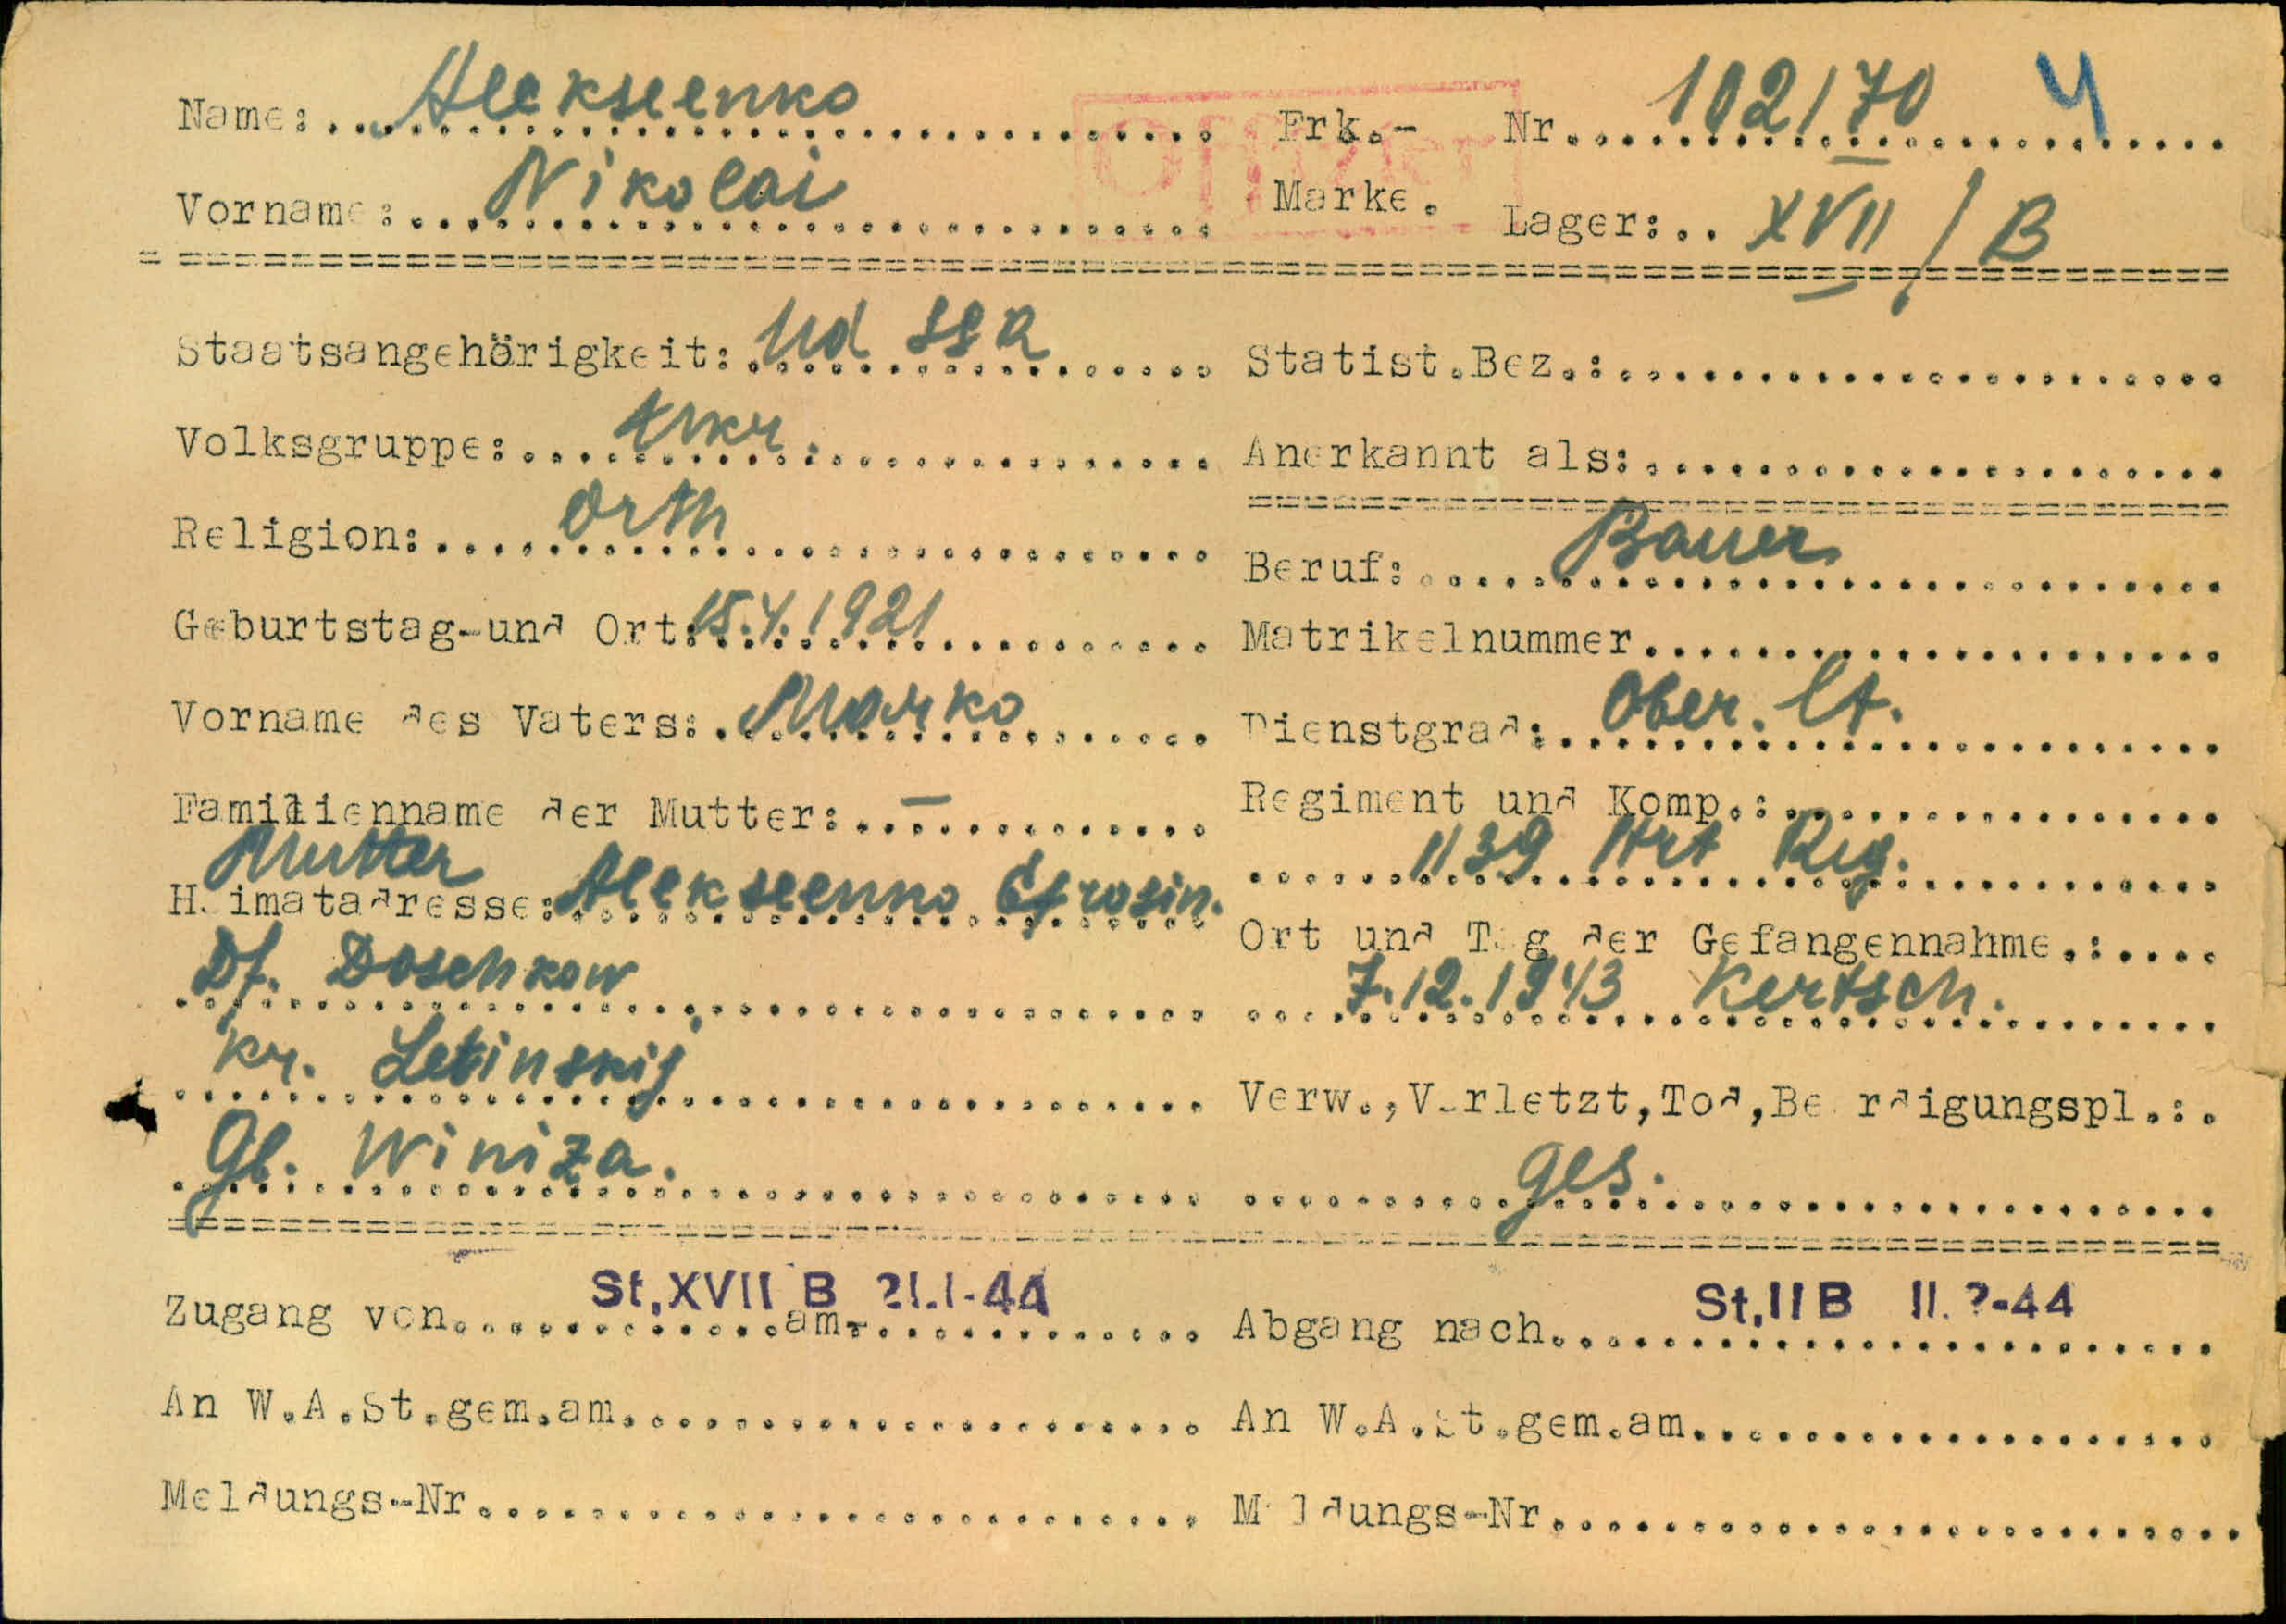 Name: Alekseenko
Vorname: Nikolai
OFFIZIER
Erk.- Marke.
Nr. 102170 4
Lager: XVII / B
Staatsangehörigkeit: Ud SSR
Volksgruppe: Ukr.
Religion: Orth
Geburtstag-und Ort: 15.4.1921
Vorname des Vaters: Marko
Familienname der Mutter: —
Mutter
Heimatadresse: Alekseenko Efrosin.
Df. Daschkow
Kr. Letinskij
Gb. Winiza.
Statist.Bez.:
Anerkannt als:
Beruf: Bauer
Matrikelnummer
Dienstgrad: Ober. lt.
Regiment und Komp.:
1139 Art Reg.
Ort und Tag der Gefangennahme.:
7.12.1943 Kertsch.
Verw.,Verletzt,Tod,Beerdigungspl.:
ges.
Zugang von St.XVII B am. 21.1-44
An W.A.St.gem.am.
Meldungs-Nr.
Abgang nach St.II B 11.2-44
An W.A.St.gem.am.
Meldungs-Nr.